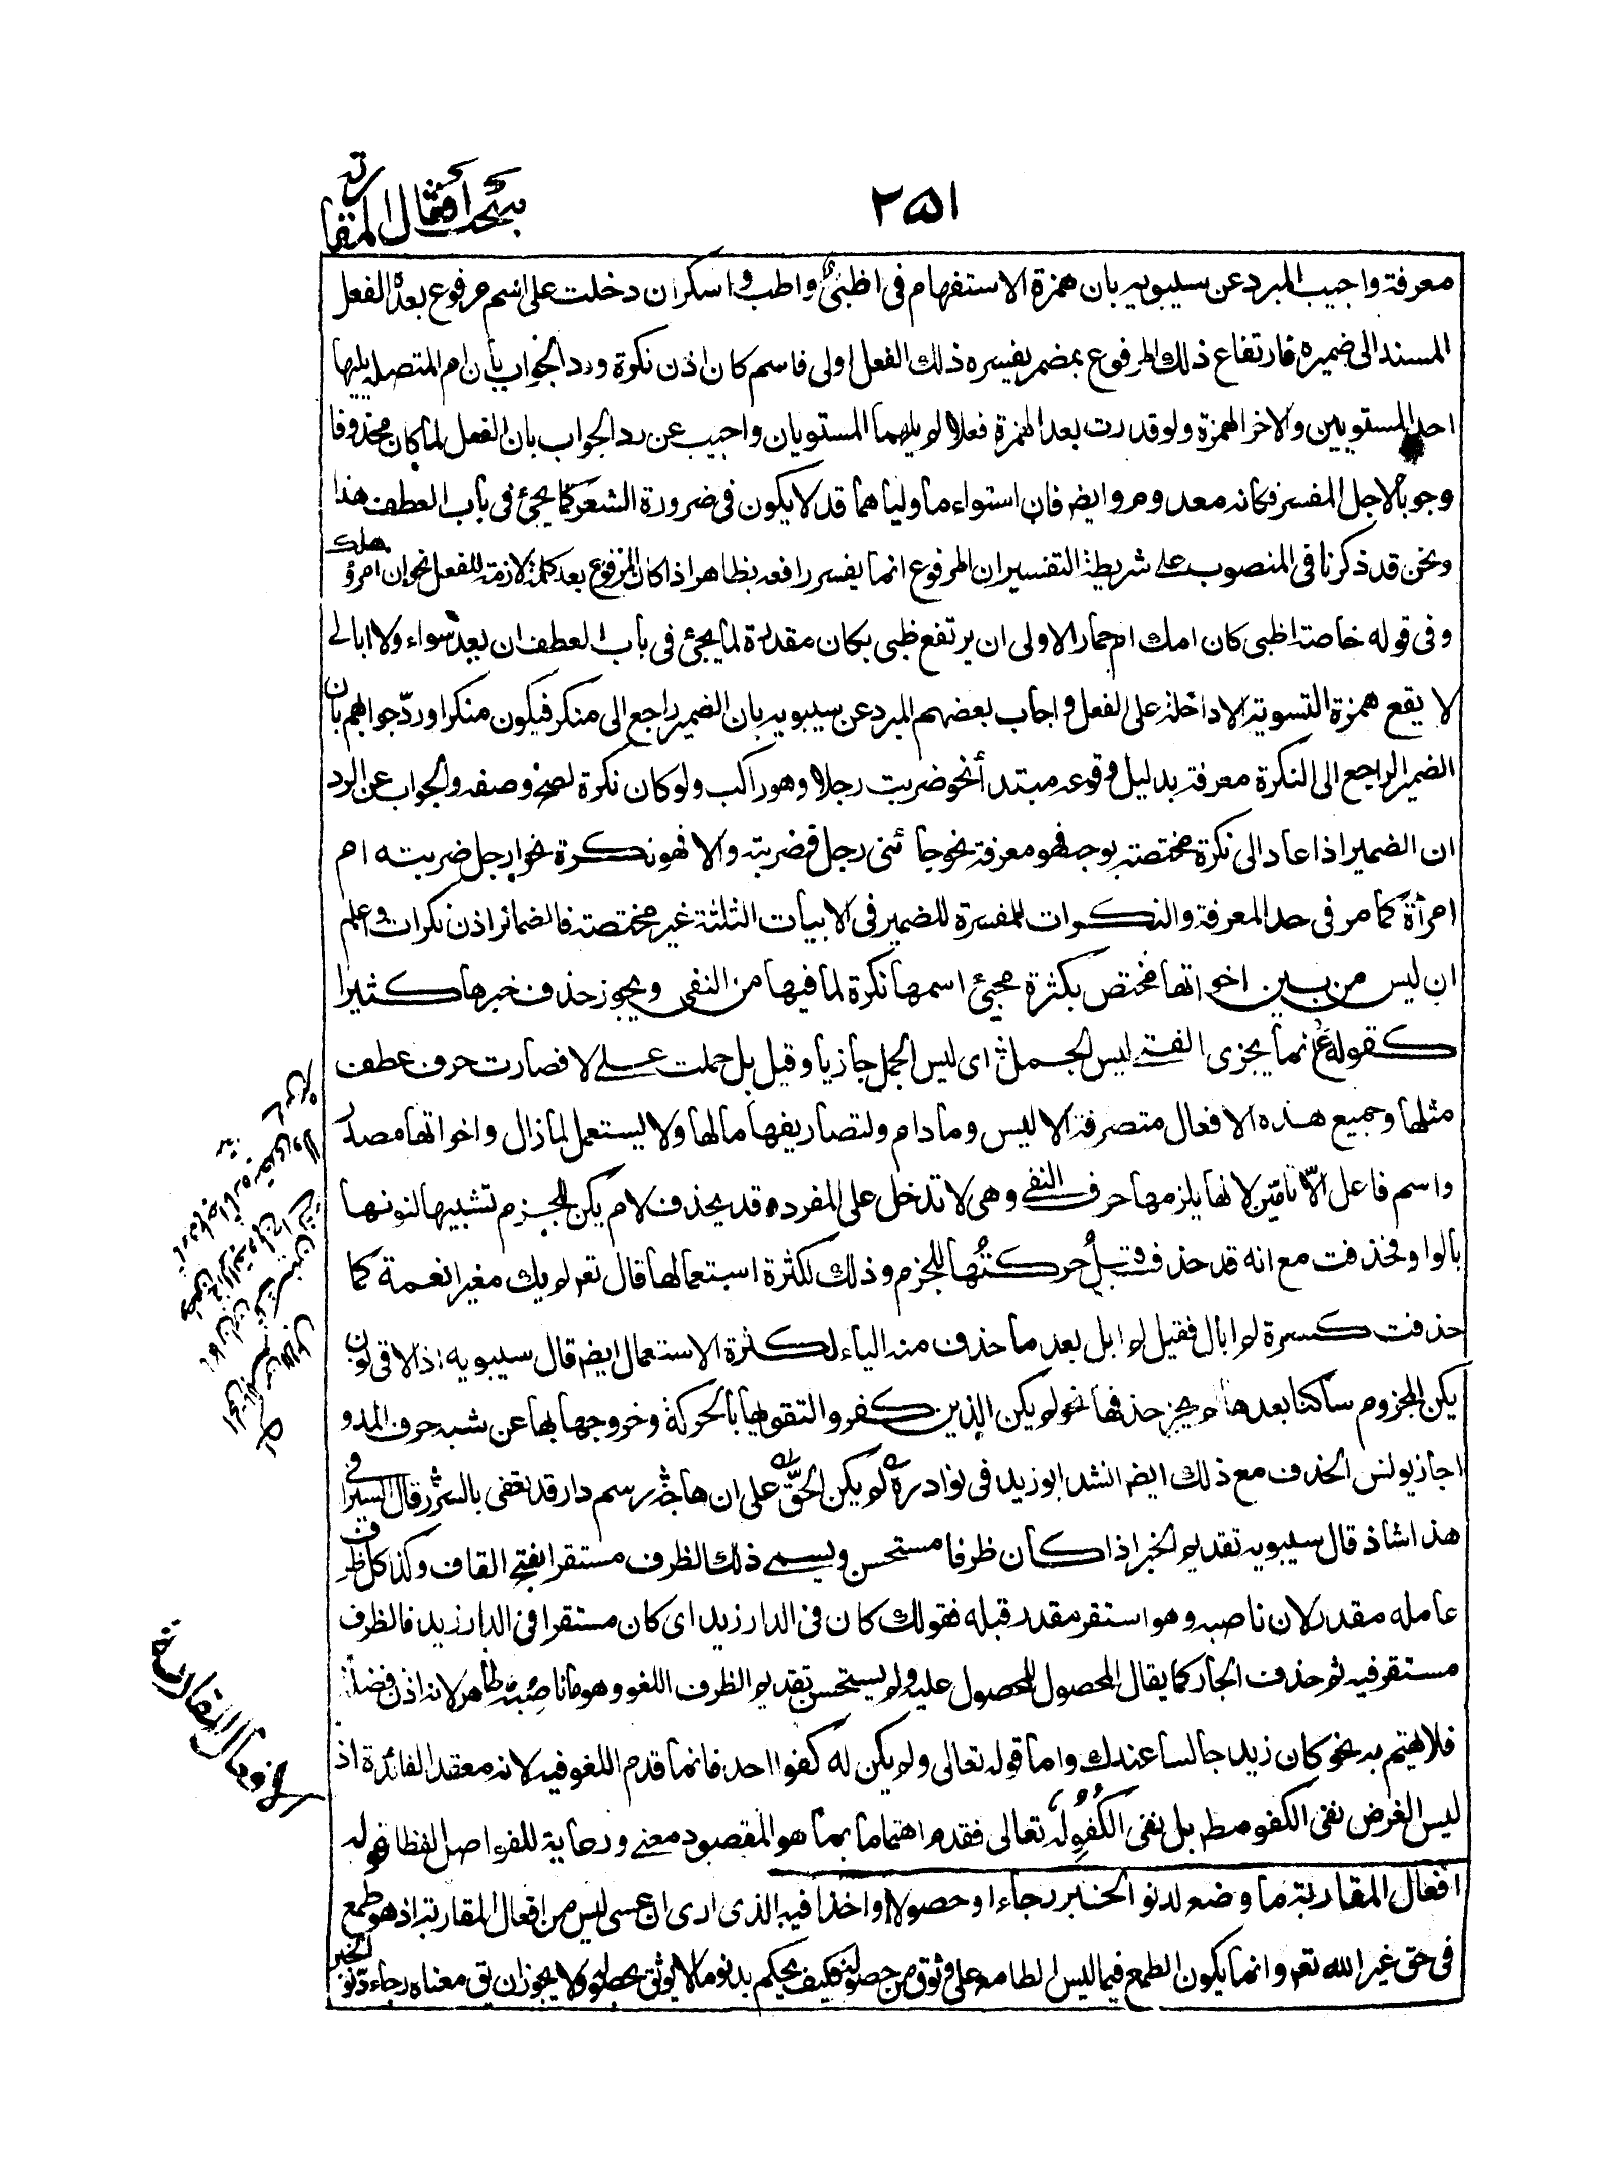 ٢٥١
بحث أفعال المقاربة
معرفة واجيب المبرد عن سيبويه بان همزة الاستفهام في اظبيٌ واطب واسكران دخلت على اسم مرفوع بعده الفعل
المسند الى ضميره فارتفاع ذلك المرفوع بمضمر يفسره ذلك الفعل اولى فاسم كان اذن نكرة ورد الجواب بان ام المتصلة يليها
احد المستويين والاخر الهمزة ولو قدرت بعد الهمزة فعلا لم يلهما المستويان واجيب عن رد الجواب بان الفعل لما كان محذوفا
وجوبا لاجل المفسر فكانه معدوم وايضا فان استواء ما ولياهما قد لا يكون في ضرورة الشعر كما يجئ في باب العطف هذا
ونحن قد ذكرنا في المنصوب على شريطة التفسير ان المرفوع انما يفسر رافعه بظاهر اذا كان المرفوع بعد كلمة لازمة للفعل نحو ان امرؤ هلك
وفي قوله خاصة اظبى كان امك ام حمار الاولى ان يرتفع ظبى بكان مقدرة لما يجئ في باب العطف ان بعد سواء ولا ابالي
لا يقع همزة التسوية الا داخلة على الفعل واجاب بعضهم المبرد عن سيبويه بان الضمير راجع الى منكر فيكون منكرا وردّ جوابهم بان
الضمير الراجع الى النكرة معرفة بدليل وقوعه مبتدأ نحو ضربت رجلا وهو راكب ولو كان نكرة لصح وصفه والجواب عن الرد
ان الضمير اذا عاد الى نكرة مختصة بوجه فهو معرفة نحو جائنى رجل فضربته والا فهو نكرة نحو ارجل ضربته ام
امرأة كما مر في حد المعرفة والنكرات المفسرة للضمير في الابيات الثلثة غير مختصة فالضمائر اذن نكرات واعلم
ان ليس من بين اخواتها مختص بكثرة مجئ اسمها نكرة لما فيها من النفى ويجوز حذف خبرها كثيرا
كقوله ع انما يجزى الفتى ليس الجمل اى ليس الجمل جازيا وقيل بل حملت على لا فصارت حرف عطف
مثلها وجميع هذه الافعال متصرفة الا ليس وما دام ولتصاريفها ما لها ولا يستعمل لما زال واخواتها مصدر
واسم فاعل الّا تامّين لانها يلزمها حرف النفى وهى لا تدخل على المفرد وقد يحذف لام يكن للجزم تشبيها لنونها
بالواو فحذفت مع انه قد حذفت قبلُ حركتُها للجزم وذلك لكثرة استعمالها قال تعم لم يك مغيرا نعمة كما
حذفت كسرة لم ابال فقيل لم ابل بعد ما حذف منه الياء لكثرة الاستعمال ايضا قال سيبويه اذا لاقى نون
يكن المجزوم ساكنا بعدها لم يجز حذفها نحو لم يكن الذين كفروا لتقويها بالحركة وخروجها بها عن شبه حرف المد و
اجاز يونس الحذف مع ذلك ايضا انشد ابو زيد في نوادره لم يكن الحقّ على ان هاجه رسم دار قد تعفى بالسرر قال السيرافي
هذا شاذ قال سيبويه تقديم الخبر اذا كان ظرفا مستحسن ويسمى ذلك الظرف مستقرا بفتح القاف وكذا كل ظرف
عامله مقدر لان ناصبه وهو استقر مقدر قبله فقولك كان في الدار زيد اى كان مستقرا في الدار زيد فالظرف
مستقر فيه ثم حذف الجار كما يقال المحصول للمحصول عليه ولم يستحسن تقديم الظرف اللغو وهو ما ناصبه ظاهر لانه اذن فضلة
فلا يهتم به نحو كان زيد جالسا عندك واما قوله تعالى ولم يكن له كفوا احد فانما قدم اللغو فيه لانه معقد الفائدة اذ
ليس الغرض نفى الكفو مطلقا بل نفى الكُفُوِ لَه تعالى فقدم اهتماما بما هو المقصود معنى ورعاية للفواصل لفظا قوله
افعال المقاربة ما وضع لدنو الخبر رجاء او حصولا او اخذا فيه الذى ارى ان عسى ليس من افعال المقاربة اذ هو طمع
في حق غير الله تعم وانما يكون الطمع فيما ليس الطامع على وثوق من حصوله فكيف يحكم بدنو ما لا يوثق بحصوله ولا يجوز ان يق معناه رجاء دنو الخبر
افعال المقاربة